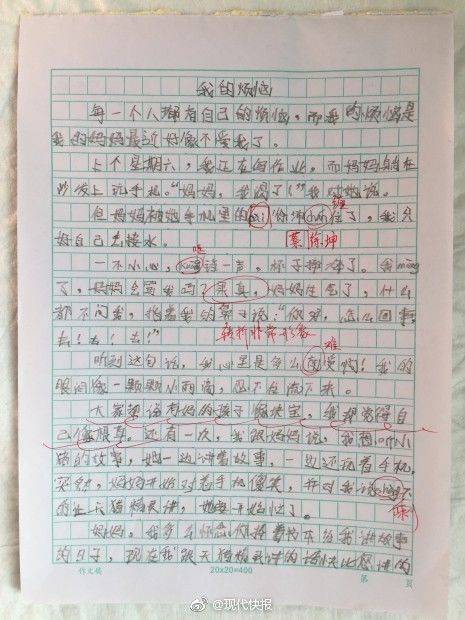 我的烦恼
每一个人都有自己的烦恼，而我的烦恼是
我的妈妈最近好像不爱我了。
上个星期六，我正在写作业，而妈妈躺在
沙发上玩手机。"妈妈，我渴了！"我对她说。
但妈妈被她手机里的
住了，我只
缠
好自己去接水。
蔡徐坤
一不小心，
一声，杯子摔碎了。我
了，妈妈会骂我吗？果真，妈妈生气了，什么
都不问我，指着我的鼻子说："你呀，怎么回事，
去！去！去！"
转折非常形象
难
听到这句话，我心里是多么
受啊！我的
眼泪像一颗颗小雨滴，忍不住流下来。
大家都说有妈的孩子像块宝，我却觉得自
己像根草。还有一次，我跟妈妈说，我想听小
猪的故事，她一边讲着故事，一边还玩着手机，
突然，妈妈开始对着手机傻笑，并对我说
你
的让天猫精灵讲，她
妈妈，我多么怀念你捧着书本给我讲故事
的日子，现在我跟天猫精灵讲的话快比您讲的
作文稿
20×20=400
第 页
@现代快报